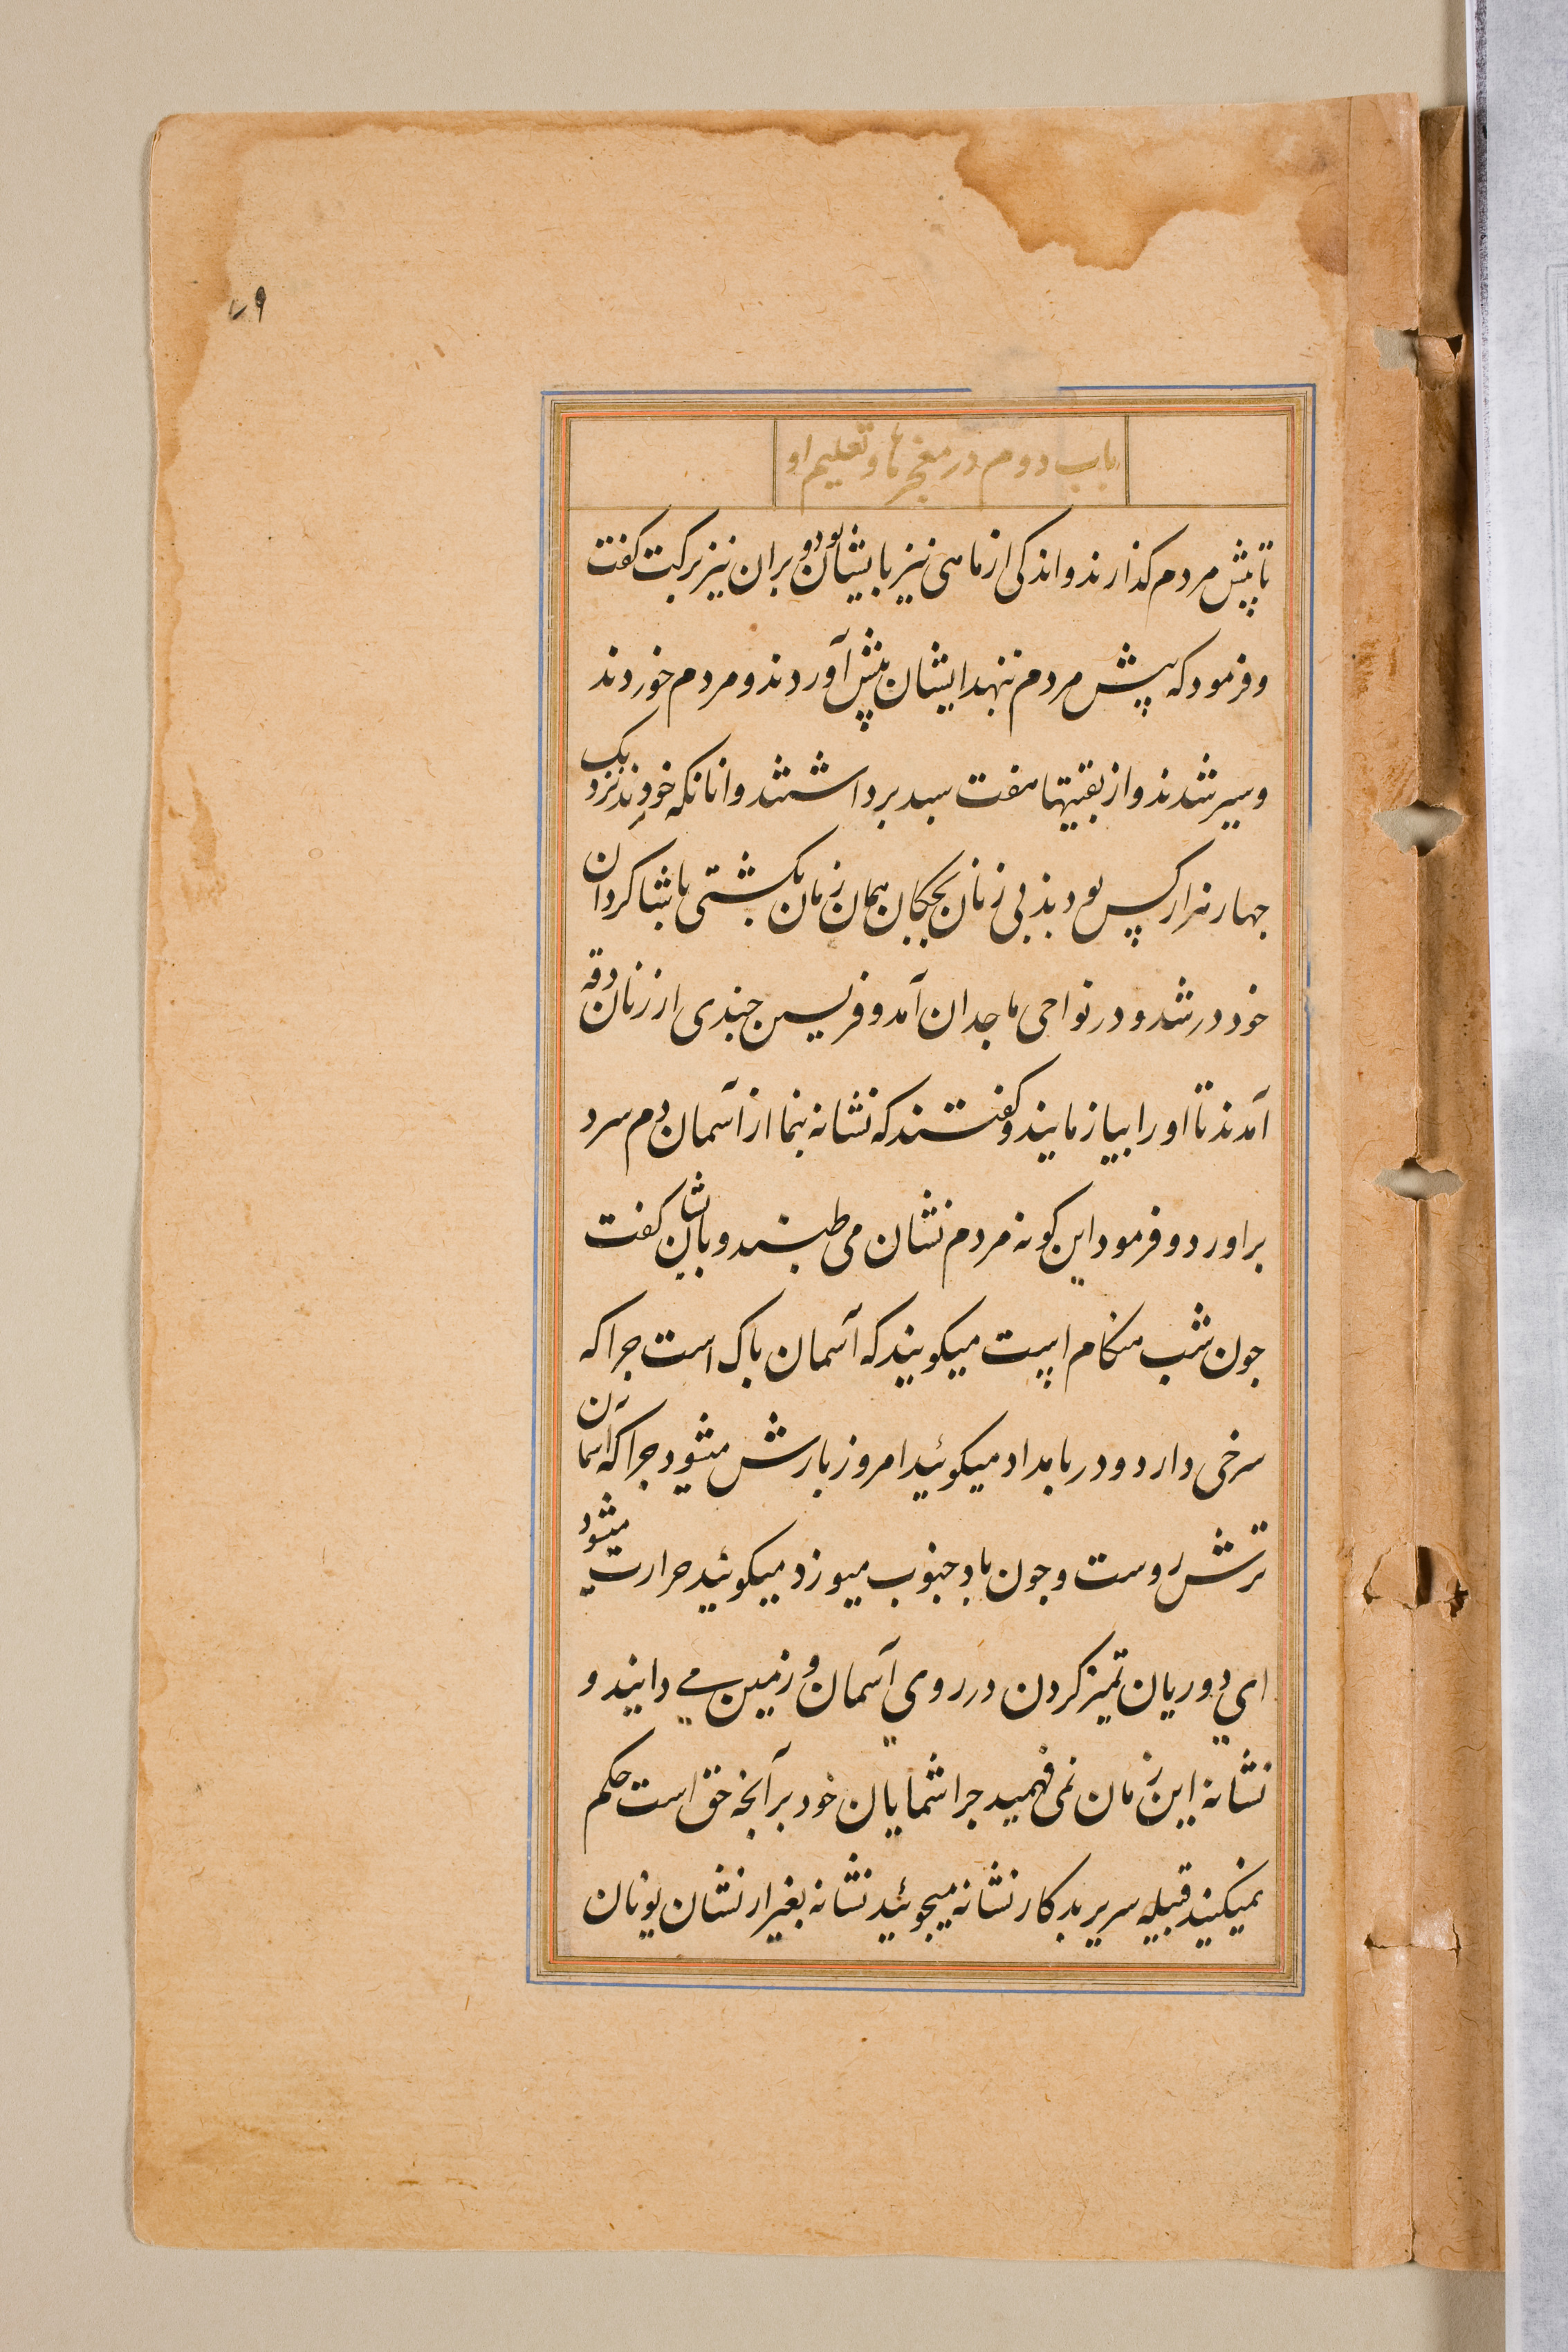 ۷۹
باب دوم در معجزها و تعلیم او
تا پیش مردم کذارند و اندکی از ماهی نیز با یشان بود و بران نیز برکت کفت
و فرمود که پیش مردم ننهد ایشان پیش آوردند و مردم خوردند
و سیر شدند و از بقیتها هفت سبد برداشتند و انانکه خوردند نزدیک
چهار هزار کس بودند بی زنان بچکان همان زمان بکشتی با شاکردان
خود در شد و در نواحی ماجدان آمد و فریسین چندی از زنادقه
آمدند تا اورا بیازمایند و کفتند که نشانه بنما از آسمان دم سرد
براورد و فرمود این کونه مردم نشان می طلبند و با یشان کفت
چون شب هنکام است میکویند که آسمان پاک است چراکه
سرخی دارد و در بامداد میکوئید امروز بارش میشود چراکه آسمان
ترش روست و چون باد جنوب میوزد میکوئید حرارت میشود
ای دوریان تمیز کردن در روی آسمان و زمین می دانید و
نشانه این زمان نمی فهمید چرا شمایان خود بر آنچه حق است حکم
نمیکنید قبیله سریر بدکار نشانه میجوئید نشانه بغیر از نشان یونان